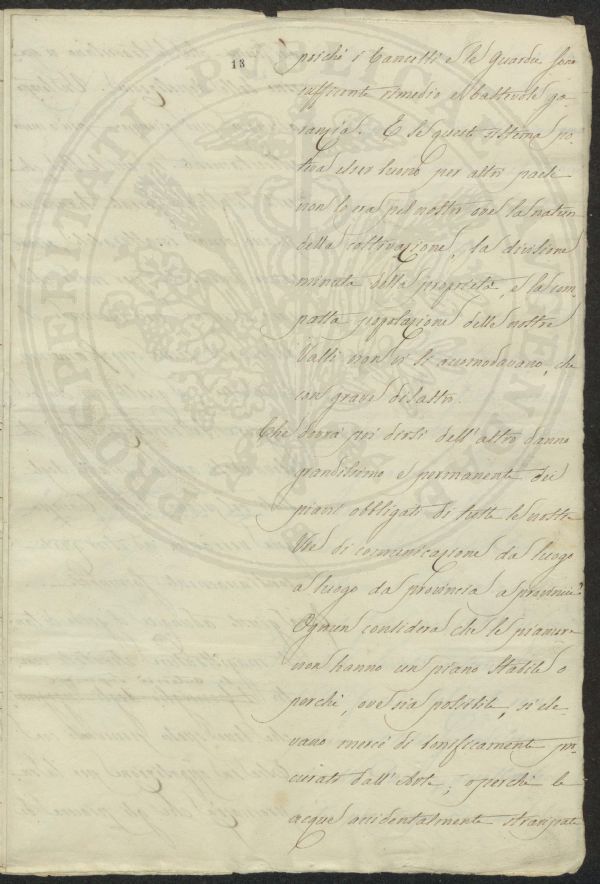 13
poichè i Cancelli e le Guardie sono
sufficente rimedio e bastevole ga-
ranzia. E se questo sistema po-
teva esser buono per altri paesi
non lo era pel nostro ove la natura
della coltivazione, la divisione
minuta della proprietà, e la com-
patta popolazione delle nostre
Valli non vi si accomodavano, che
con grave disastro.
Che dovrà poi dirsi dell'altro danno
grandissimo e permanente dei
piani obbligati di tutte le nostre
Vie di comunicazione da luogo
a luogo da provincia a provincia?
Ognun considera che le pianure
non hanno un piano stabile o
perchè, ove sia possibile, si ele-
vano mercè di bonificamenti pro-
curati dall'Arte; o perchè le
acque accidentalmente straripate
PROSPERITATI PUBLICAE